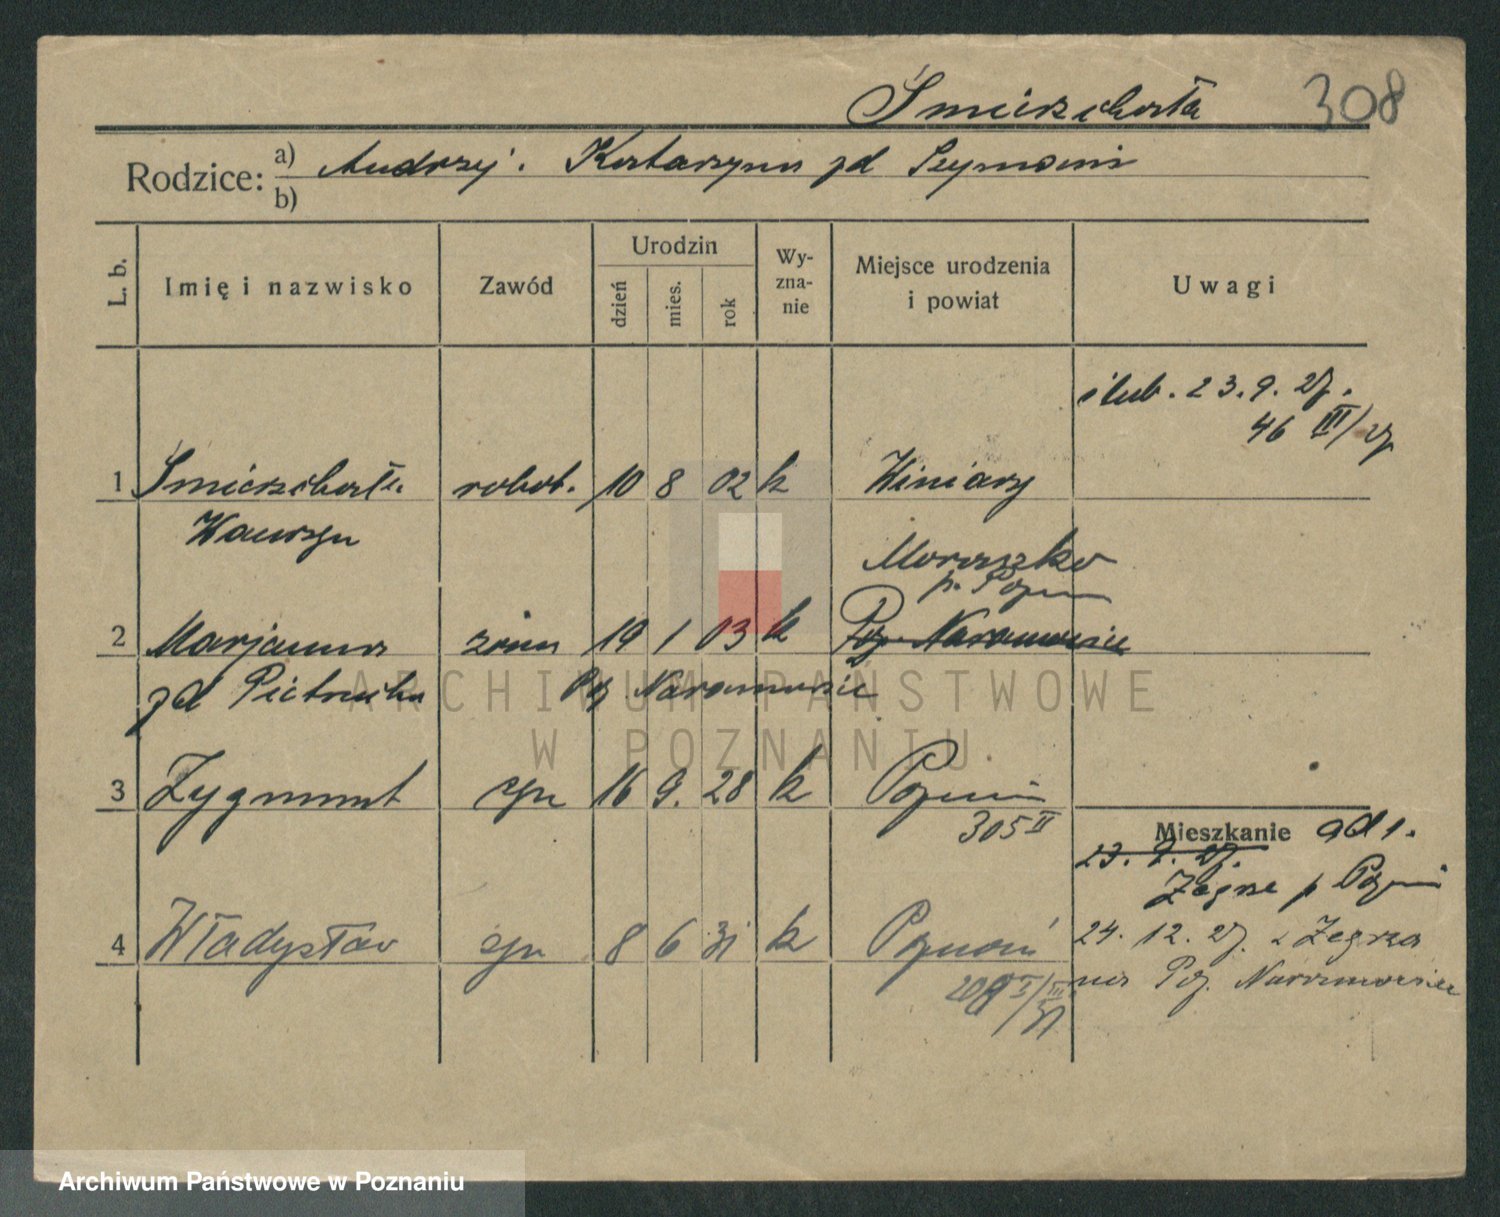 Śmierzchała 308
Rodzice: a) Andrzej. Katarzyna zd Szymań
b)
L. b.
Imię i nazwisko
Zawód
Urodzin
dzień
mies.
rok
Wy-
zna-
nie
Miejsce urodzenia
i powiat
Uwagi
ślub. 23.9.27.
46 III/27
1 Śmierzchała robot. 10 8 02 k Winiary
Wawrzyn
Morasko
p. Pozn
2 Marjanna żona 19 1 03 k Poz. Naramowice
zd Pietrucha Poz Naramowice
3 Zygmunt syn 16 9. 28 k Poznań
305 II
Mieszkanie ad 1.
23. 9. 27.
Zegrze p Pozn
4 Władysław syn 8 6 31 k Poznań
24. 12. 27. z Zegrza
na Poz. Naramowice
I/III 31
ARCHIWUM PAŃSTWOWE
W POZNANIU
Archiwum Państwowe w Poznaniu